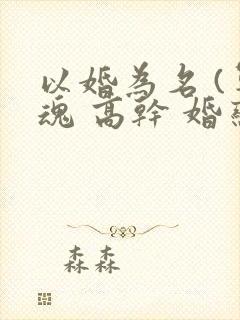 以婚為名(
魂 高幹 婚
森森